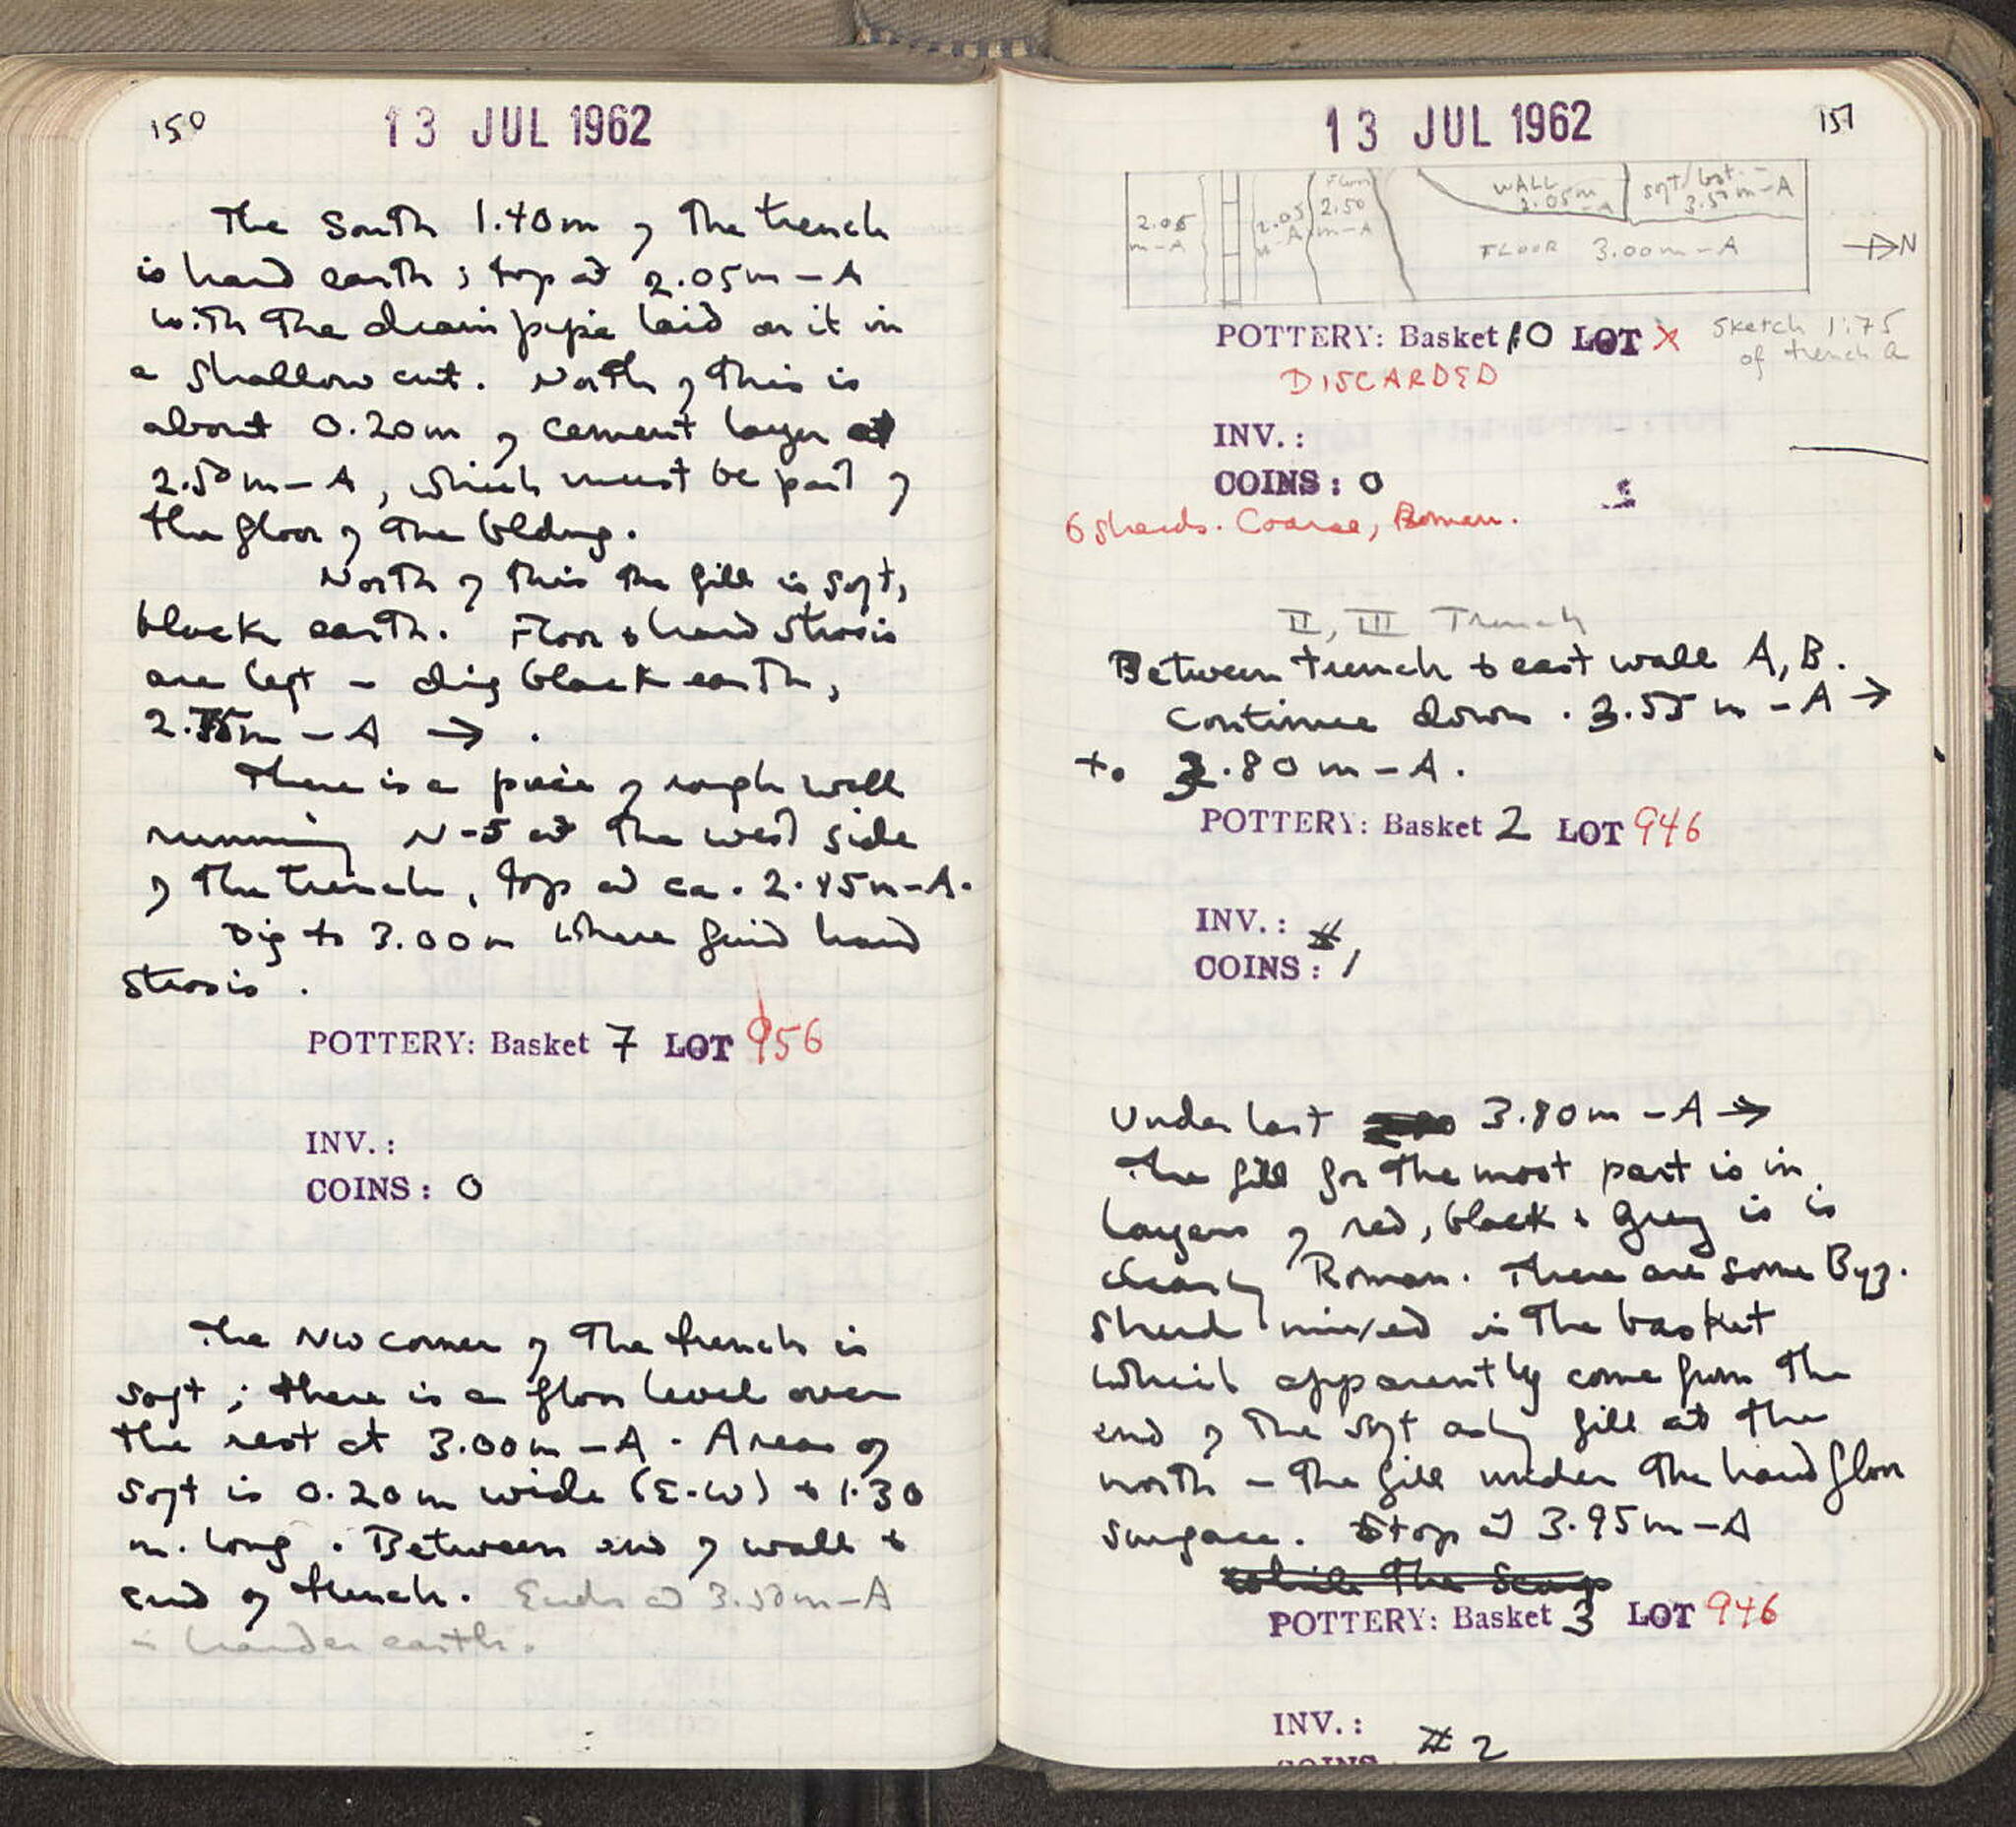 150
13 JUL 1962
The South 1.40m of the trench
is hard earth; top at 2.05m - A
with the drain pipe laid on it in
a shallow cut. North of this is
about 0.20m of cement layer at
2.50m - A, which must be part of
the floor of the bldng.
North of this the fill is soft,
black earth. Floor & hard strosis
are left - dig black earth,
2.55m - A → .
There is a piece of rough wall
running N-S at the west side
of the trench, top at ca. 2.85m-A.
Dig to 3.00m where find hard
strosis.
POTTERY: Basket 7 LOT 956
INV. :
COINS : 0
The NW corner of the trench is
soft; there is a floor level over
the rest at 3.00m - A. Area of
soft is 0.20m wide (E-W) + 1.30
m. long. Between end of wall +
end of trench. Ends at 3.50m-A
in harder earth.
13 JUL 1962
151
2.05
m-A
2.05
m-A
Floor
2.50
m-A
WALL
2.05m
-A
soft/bot. -
3.50m-A
FLOOR 3.00m-A
N
Sketch 1:75
of trench a
POTTERY: Basket 10 LOT X
DISCARDED
INV. :
COINS : 0
6 sherds. Coarse, Roman.
II, III Trench
Between trench & east wall A, B.
Continue down. 3.55m - A →
to 3.80m - A.
POTTERY: Basket 2 LOT 946
INV. : #
COINS : 1
Under last 3.80m - A →
The fill for the most part is in
layers of red, black & grey is is
clearly Roman. There are some Byz.
sherd mixed in the basket
which apparently come from the
end of the soft ashy fill at the
north - the fill under the hard floor
surface. Stop at 3.95m - A
while the
POTTERY: Basket 3 LOT 946
INV. :
COINS : # 2